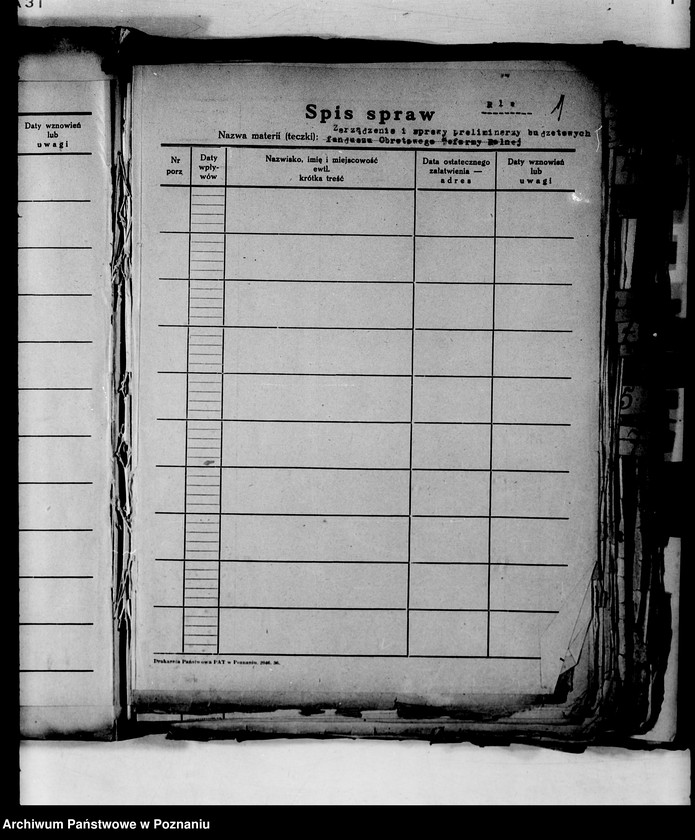 Daty wznowień
lub
uwagi
Spis spraw
1
Nazwa materii (teczki): Zarządzenie i sprawy preliminarzy budżetowych
funduszu Obrotowego Reformy Rolnej
Nr
porz.
Daty
wpły-
wów
Nazwisko, imię i miejscowość
ewtl.
krótka treść
Data ostatecznego
załatwienia —
adres
Daty wznowień
lub
uwagi
Drukarnia Państwowa PAT w Poznaniu.
Archiwum Państwowe w Poznaniu